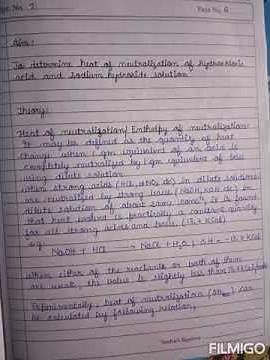 Expt. No. 1
Page No. 6
Aim:
To determine heat of neutralization of hydrochloric
acid and sodium hydroxide solution
Theory:
Heat of neutralization/ Enthalpy of neutralization:
It may be defined as the quantity of heat
change when 1 gm equivalent of an acid is
completely neutralized by 1 gm equivalent of base
using dilute solution
When strong acids (HCl, HNO3 etc) in dilute solutions
are neutralized by strong bases (NaOH, KOH etc) in
dilute solution of about same it is found
that heat evolved is practically a constant quantity
for all strong acids and bases (13.7 kcal)
e.g.
NaOH + HCl → NaCl + H2O, ΔH = -13.7 kcal
When either of the reactants or both of them
are weak, the value is slightly less than 13.7 kcal
Experimentally, heat of neutralization can
be calculated by following relation,
Teacher's Signature
FILMIGO